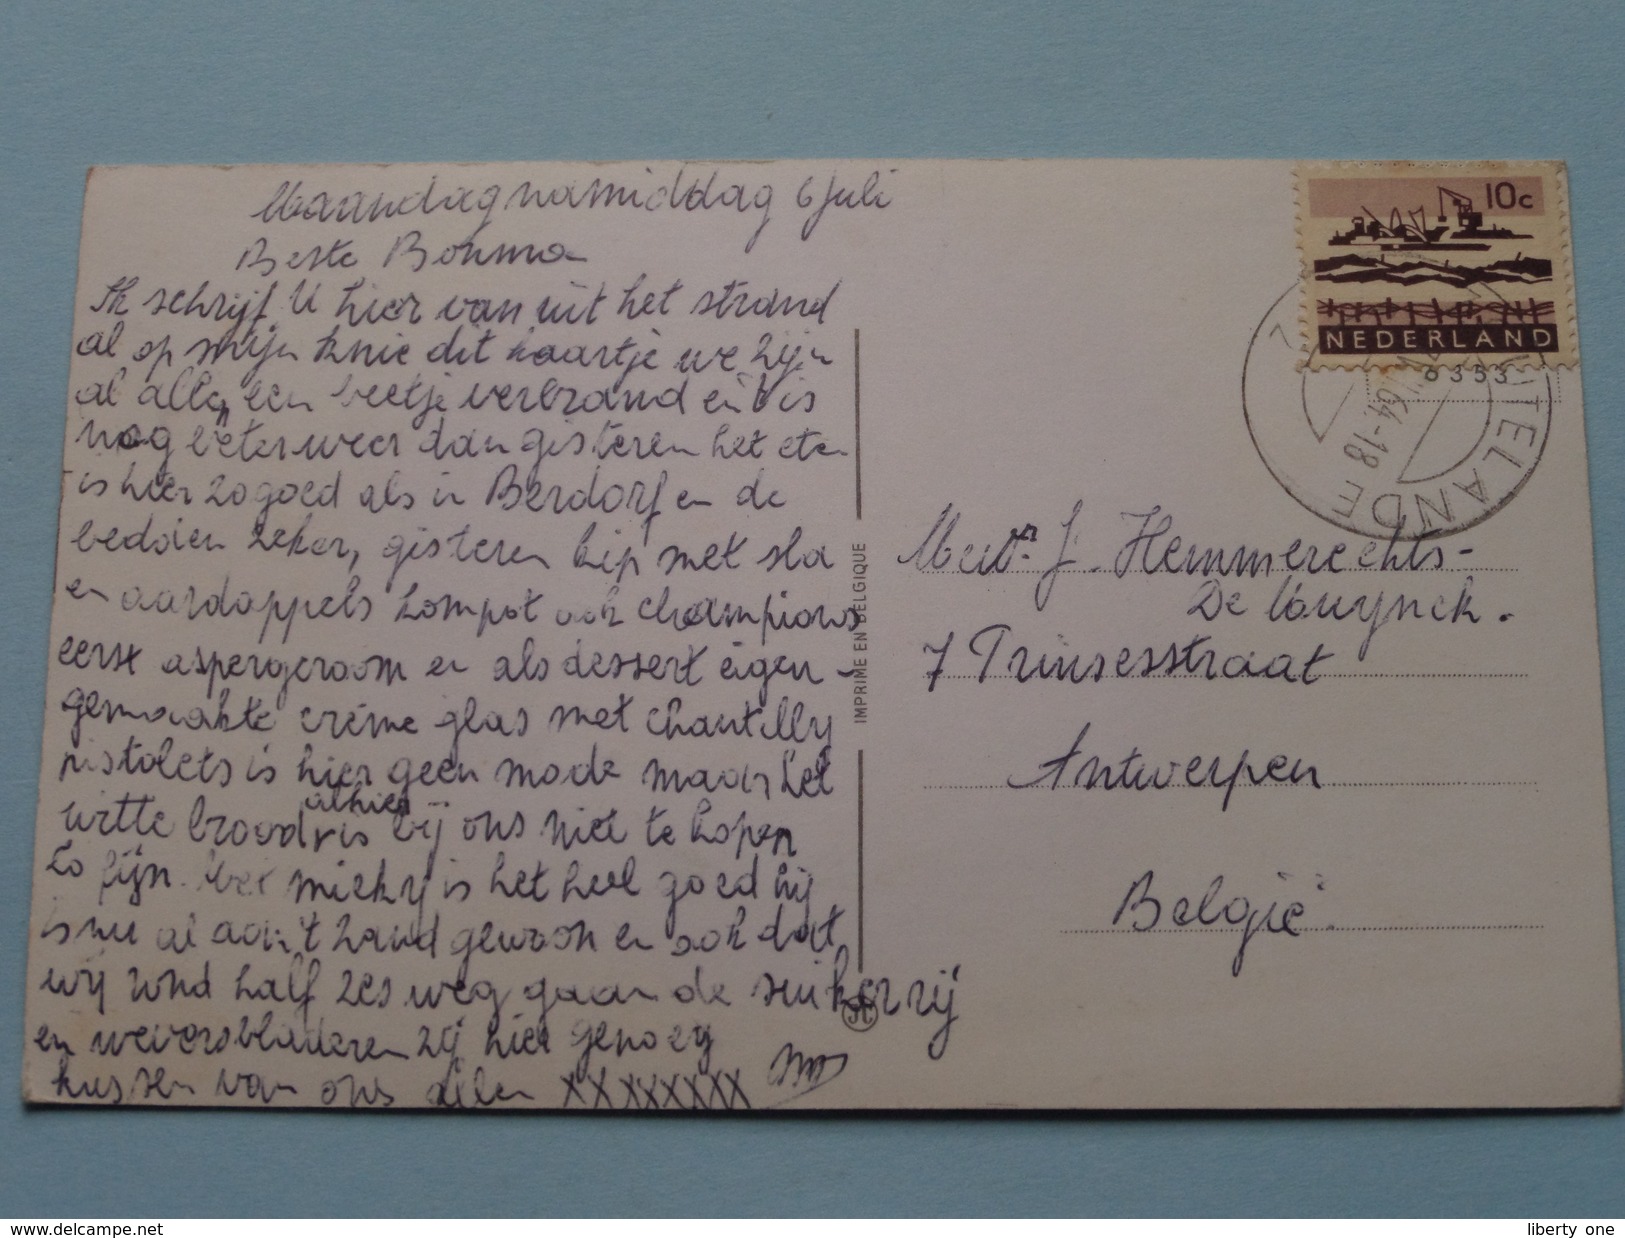 Maandagnamiddag 6 Juli
Beste Bonma
Ik schrijf U hier van uit het strand
al op mijn knie dit kaartje we zijn
al allen een beetje verbrand en 't is
nog beter weer dan gisteren het eten
is hier zo goed als in Berdorf en de
bedden zeker, gisteren kip met sla
en aardappels kompot ook champions
eerst aspergeroom en als dessert eigen-
gemaakte crème glas met chantilly
pistolets is hier geen mode maar het
witte brood alhier is bij ons niet te kopen
zo fijn. Met micky is het heel goed hij
is nu al aan 't zand gewoon en ook dat
wij rond half zes weg gaan de suikerrij
en weversbladeren zij hier genoeg
kussen van ons allen XXXXXXXX
IMPRIME EN BELGIQUE
10c
NEDERLAND
6353
64-18
ZOUTELANDE
Mevr. J. Hemmerechts-
De Cuynck.
7 Prinsesstraat
Antwerpen
België.
www.delcampe.net
liberty one